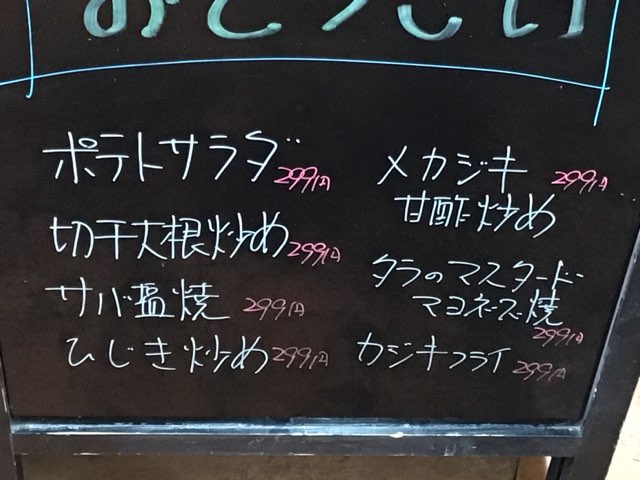 ポテトサラダ 299円
切干大根炒め 299円
サバ塩焼 299円
ひじき炒め 299円
メカジキ 299円
甘酢炒め
タラのマスタード
マヨネーズ焼
299円
カジキフライ 299円